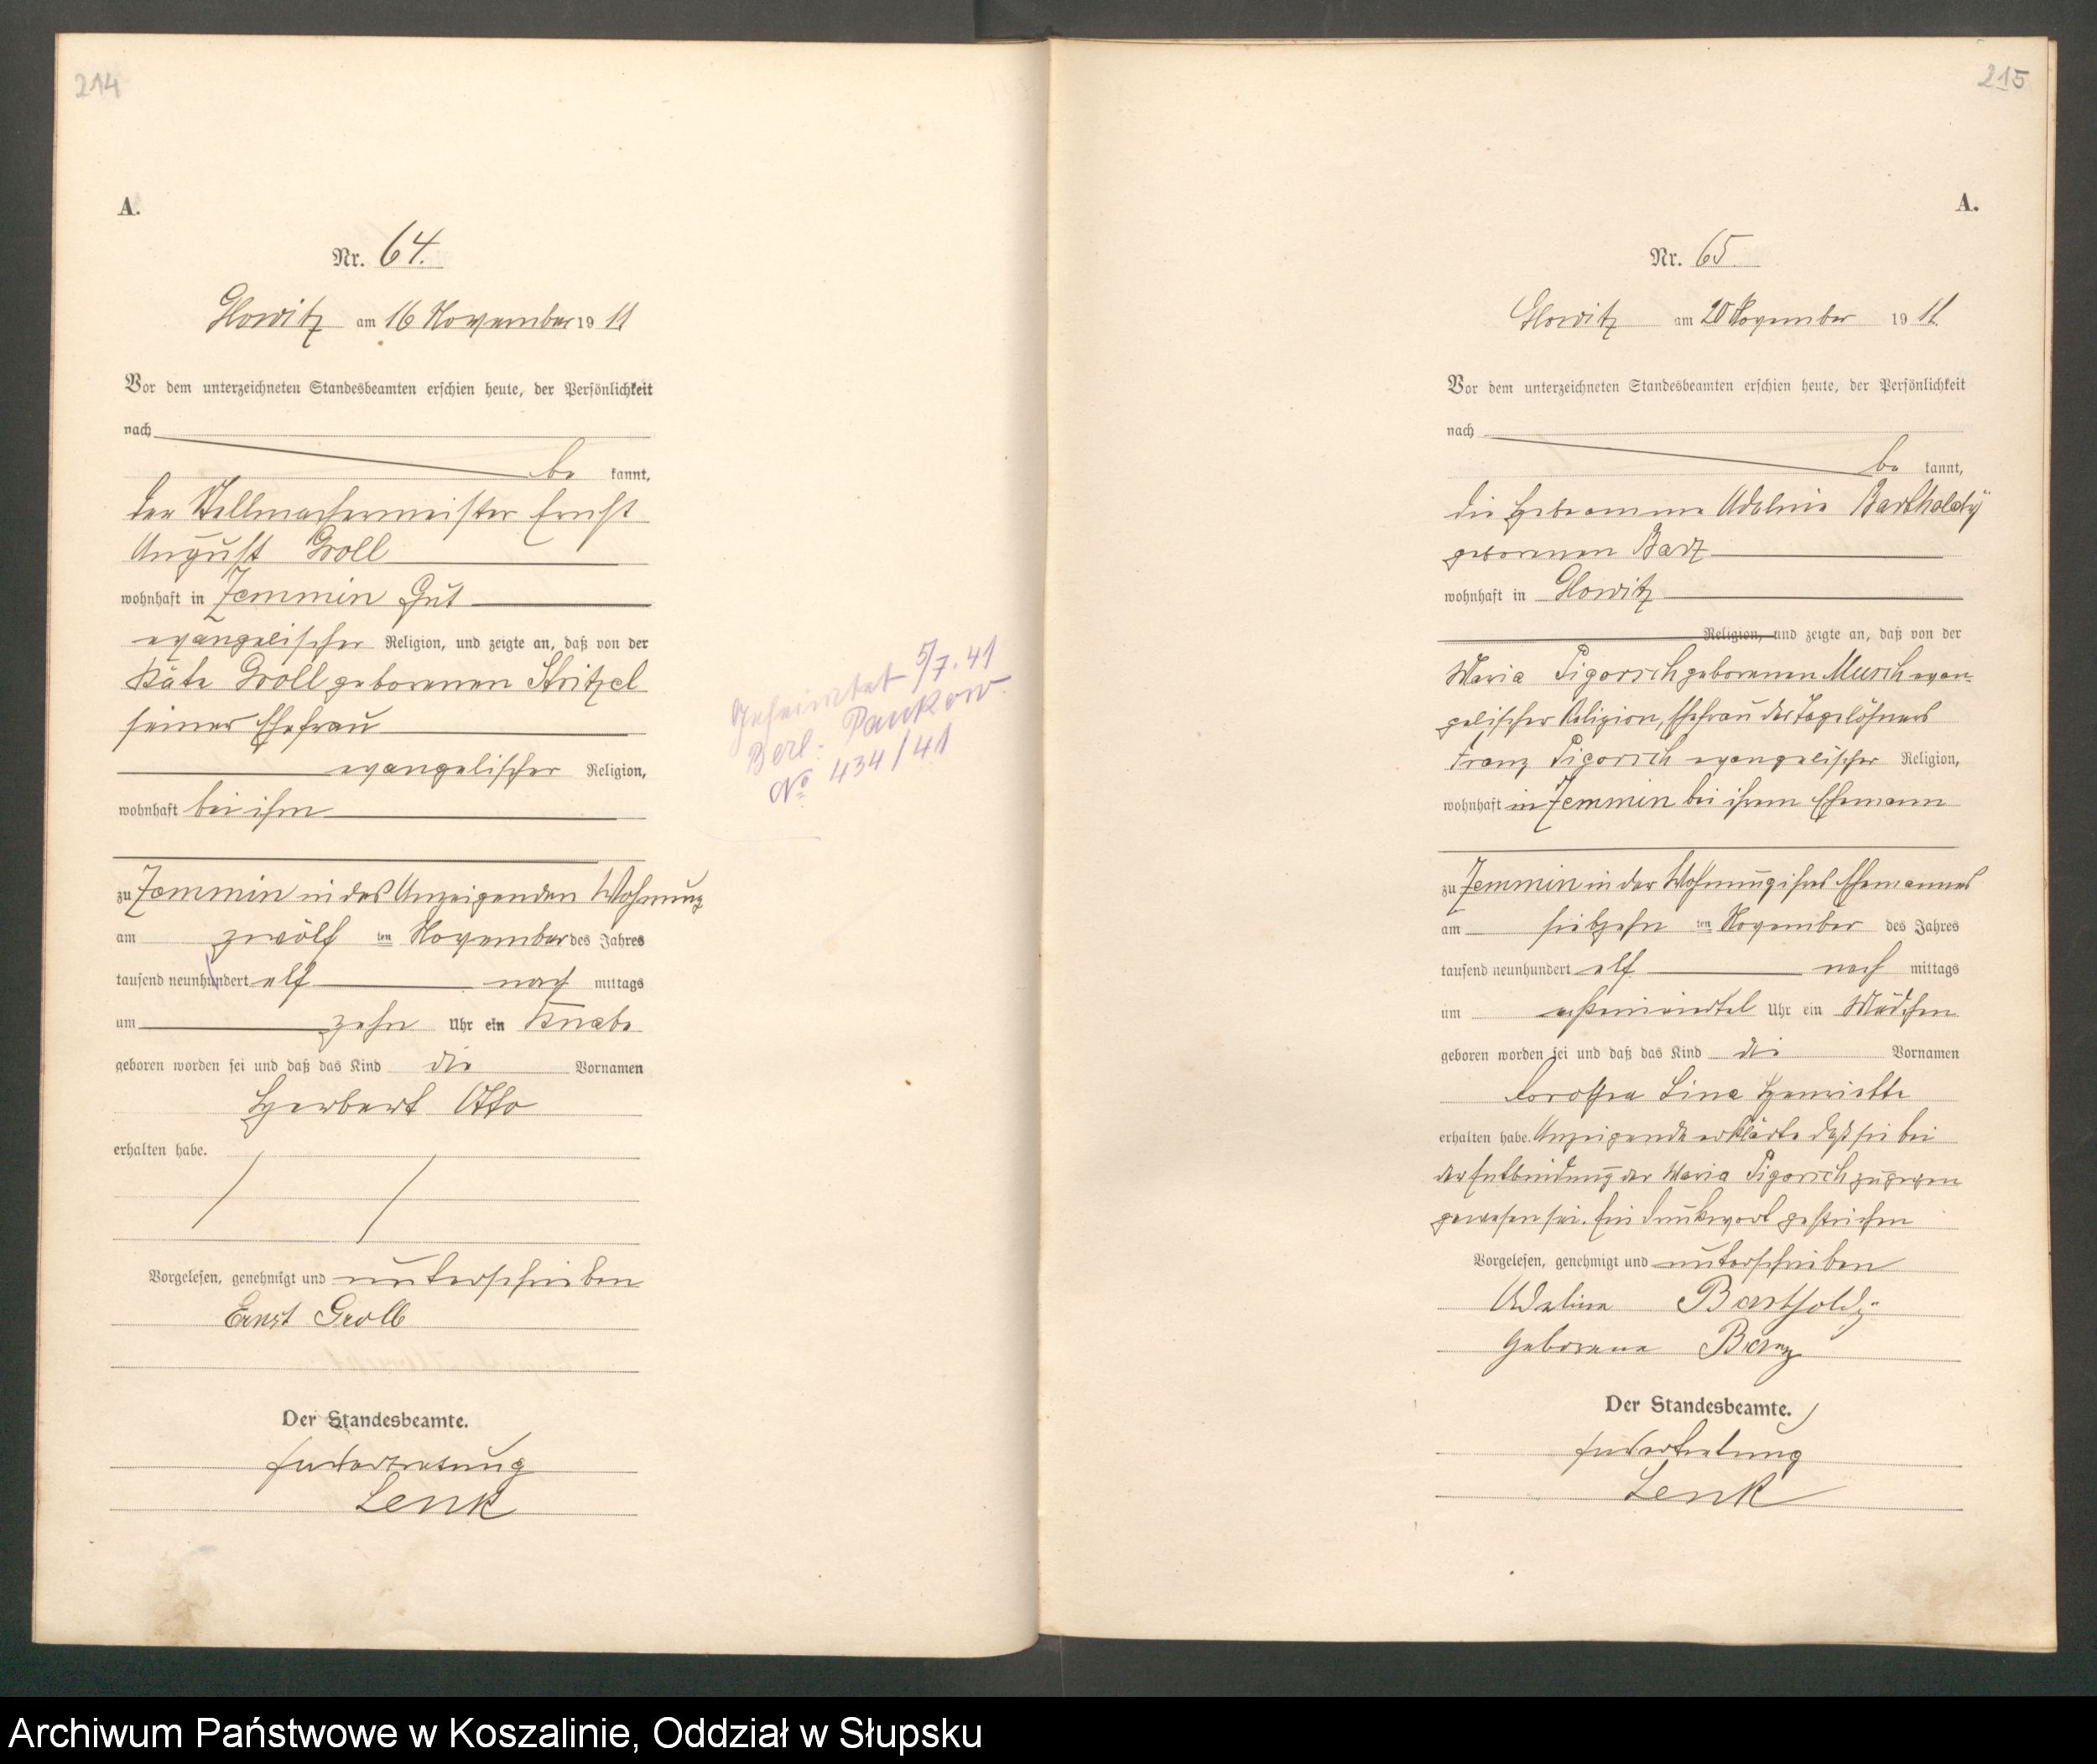 214
A.
Nr. 64.
Glowitz am 16 November 19 11
Vor dem unterzeichneten Standesbeamten erschien heute, der Persönlichkeit
nach
be kannt,
der Stellmachermeister Ernst
August Groll
wohnhaft in Zemmin Gut
evangelischer Religion, und zeigte an, daß von der
Käte Groll geborenen Stritzel
seiner Ehefrau
evangelischer Religion,
wohnhaft bei ihm
zu Zemmin in des Anzeigenden Wohnung
am zwölf ten November des Jahres
tausend neunhundert elf nach mittags
um zehn Uhr ein Knabe
geboren worden sei und daß das Kind die Vornamen
Herbert Otto
erhalten habe.
Vorgelesen, genehmigt und unterschrieben
Ernst Groll
Der Standesbeamte.
In Vertretung
Lenk
Geheiratet 5/7. 41
Berl. Pankow.
No 434/41
215
A.
Nr. 65.
Glowitz am 20 November 19 11.
Vor dem unterzeichneten Standesbeamten erschien heute, der Persönlichkeit
nach
be kannt,
die Hebeamme Adeline Bartholdÿ
geborenen Barz
wohnhaft in Glowitz
Religion, und zeigte an, daß von der
Maria Pigorsch geborenen Musch evan-
gelischer Religion, Ehefrau des Tagelöhners
Franz Pigorsch evangelischer Religion,
wohnhaft in Zemmin bei ihrem Ehemann
zu Zemmin in der Wohnung ihres Ehemannes
am siebzehn ten November des Jahres
tausend neunhundert elf nach mittags
um Uhr ein Mädchen
geboren worden sei und daß das Kind die Vornamen
Dorothea Lina Henriette
erhalten habe. Anzeigende erklärte daß sie bei
der Entbindung der Maria Pigorsch zugegen
gewesen sei. Ein Druckwort gestrichen
Vorgelesen, genehmigt und unterschrieben
Adeline Bartholdy
geborene Barz
Der Standesbeamte.
In Vertretung
Lenk
Archiwum Państwowe w Koszalinie, Oddział w Słupsku